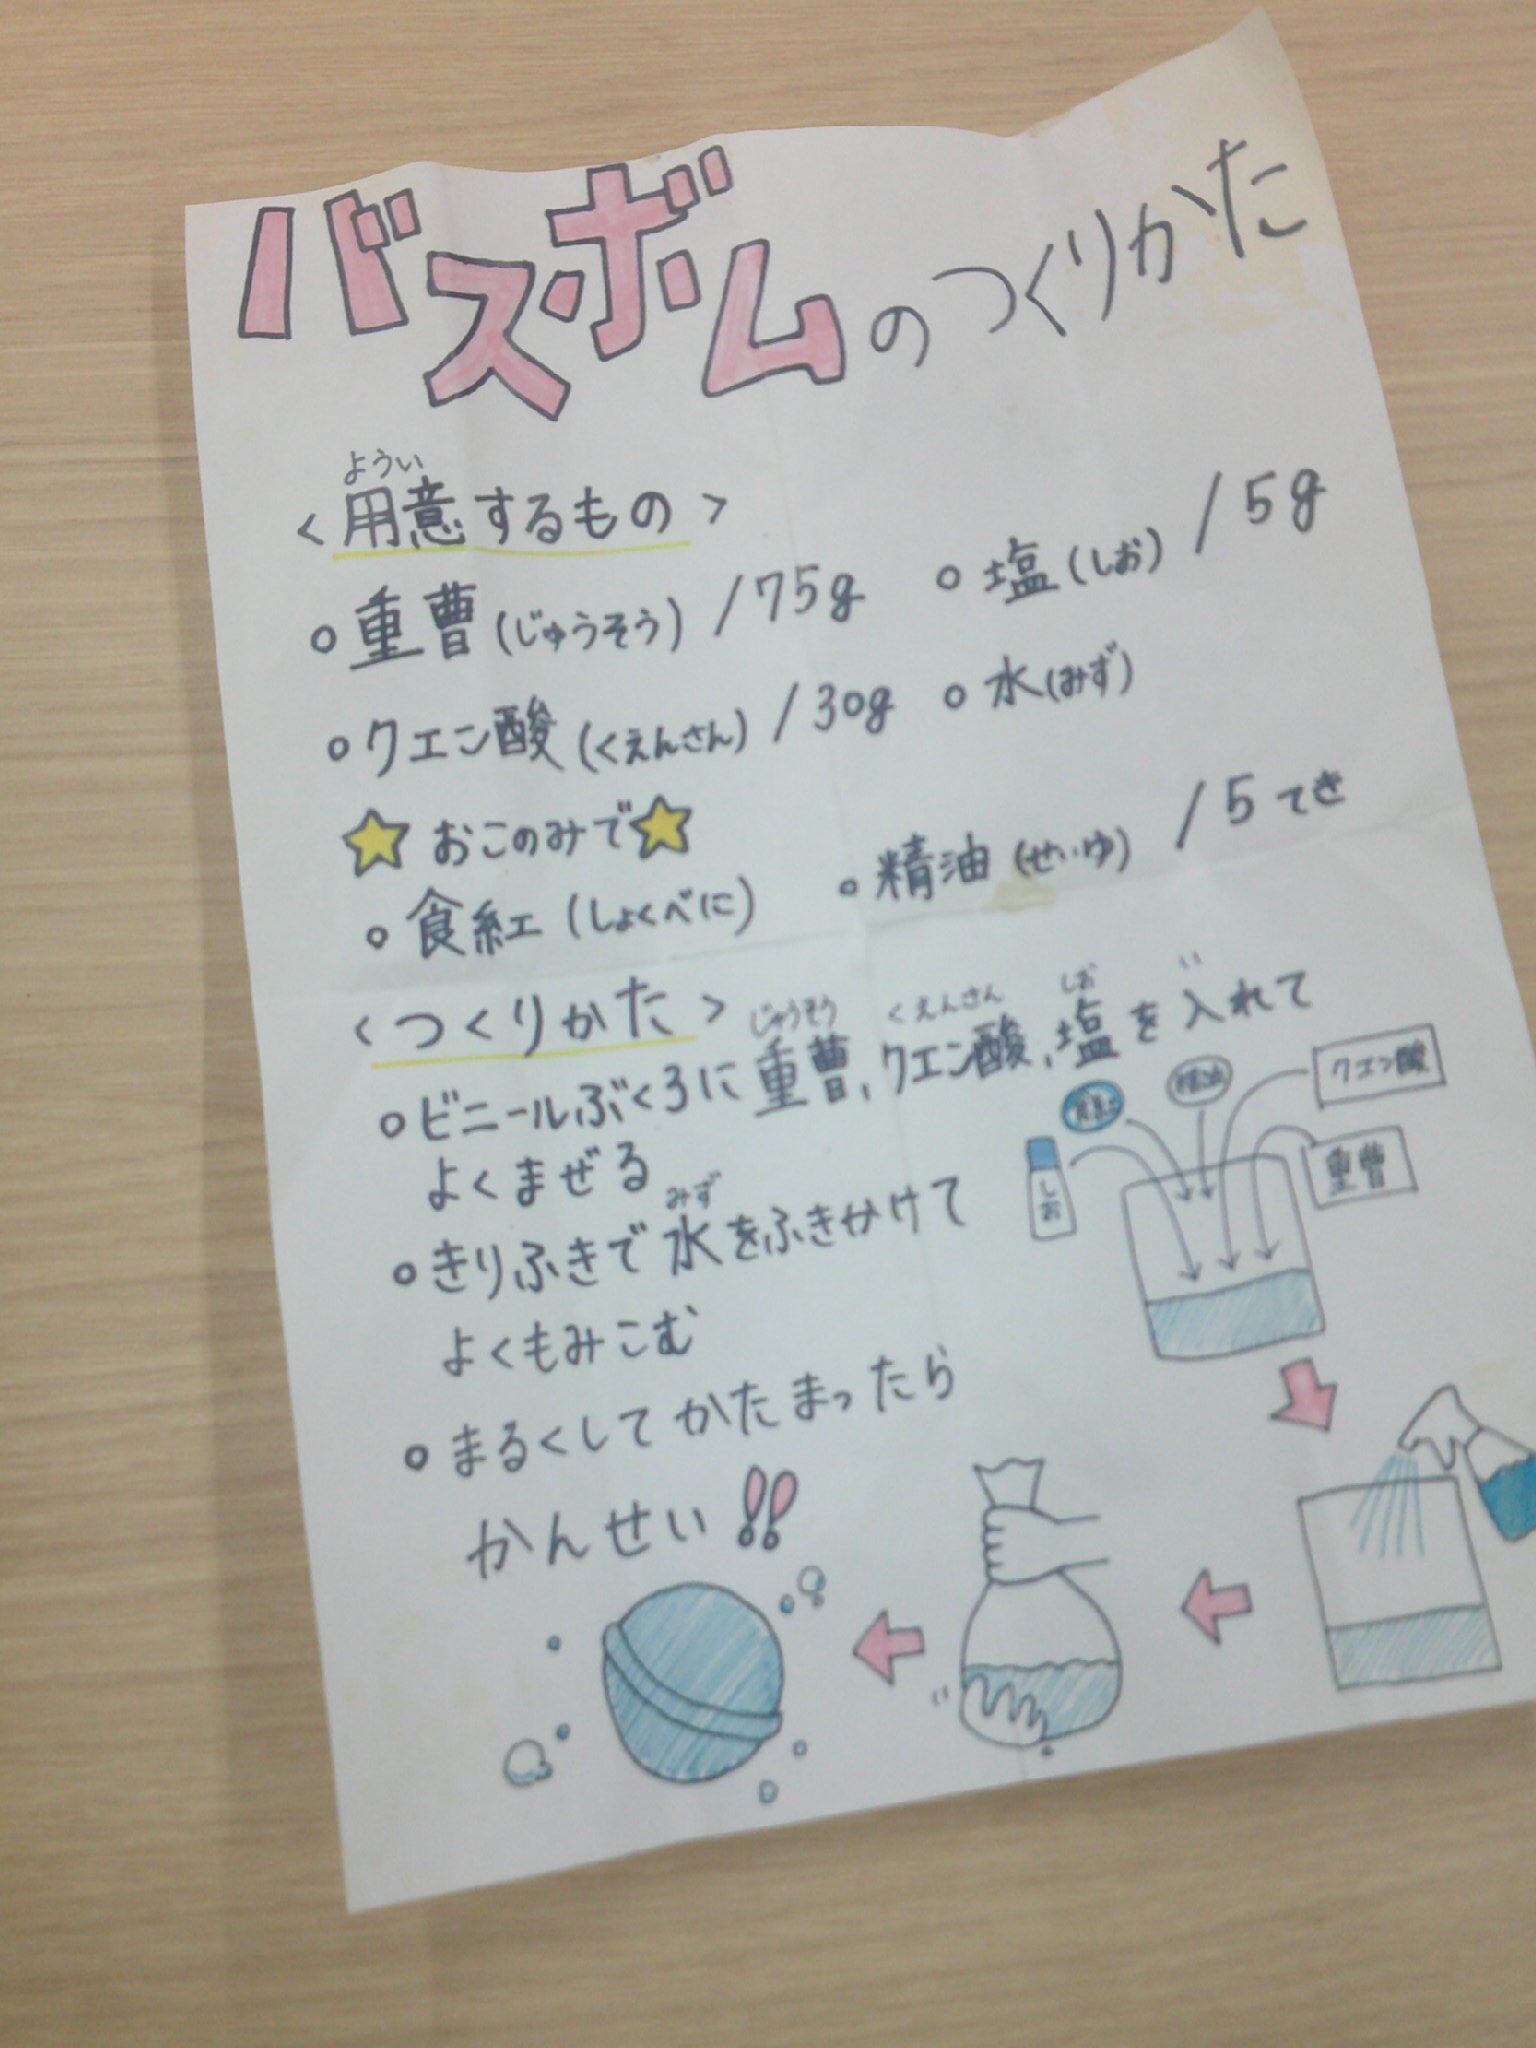 バスボムのつくりかた
ようい
<用意するもの>
○重曹(じゅうそう)/75g ○塩(しお)/5g
○クエン酸(くえんさん)/30g ○水(みず)
☆おこのみで☆
○食紅(しょくべに) ○精油(せいゆ)/5てき
<つくりかた>
じゅうそう くえんさん しお い
○ビニールぶくろに重曹、クエン酸、塩を入れて
よくまぜる
みず
○きりふきで水をふきかけて
よくもみこむ
○まるくしてかたまったら
かんせい!!
クエン酸
精油
重曹
しお